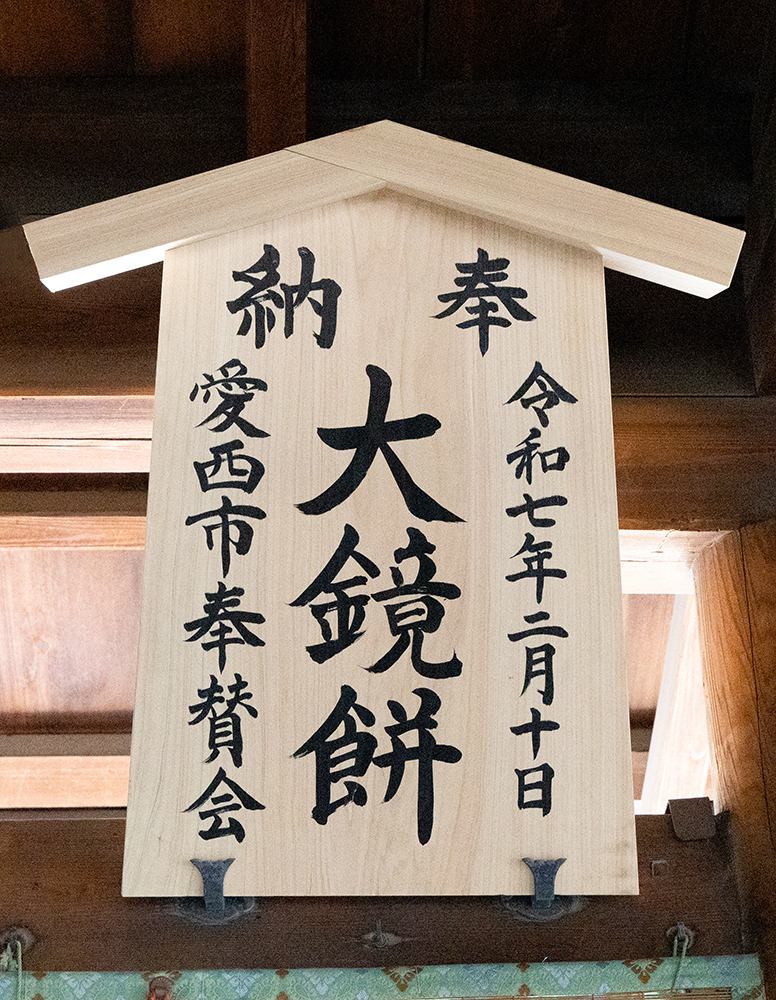 奉納
令和七年二月十日
大鏡餅
愛西市奉賛会